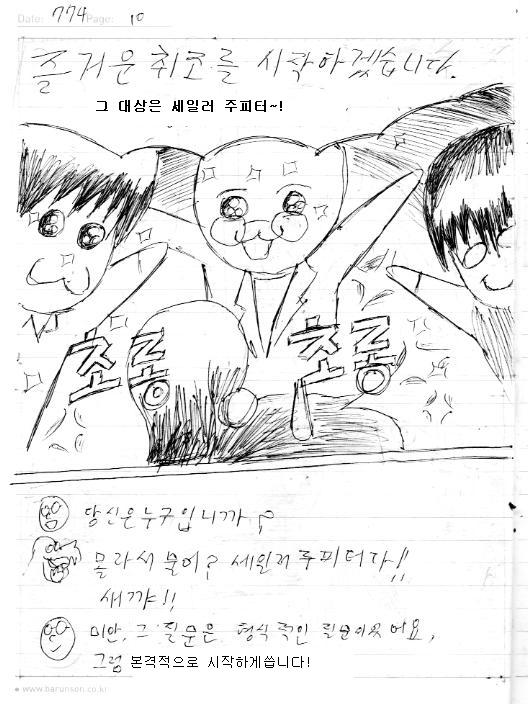 Date: 774 Page: 10
즐거운 취조를 시작하겠습니다.
그 대상은 세일러 주피터~!
초롱 초롱
당신은 누구입니까?
몰라서 물어? 세일러 쥬피터다!!
새꺄!!
미안, 그 질문은 형식적인 질문이었어요,
그럼 본격적으로 시작하게씁니다!
www.barunson.co.kr